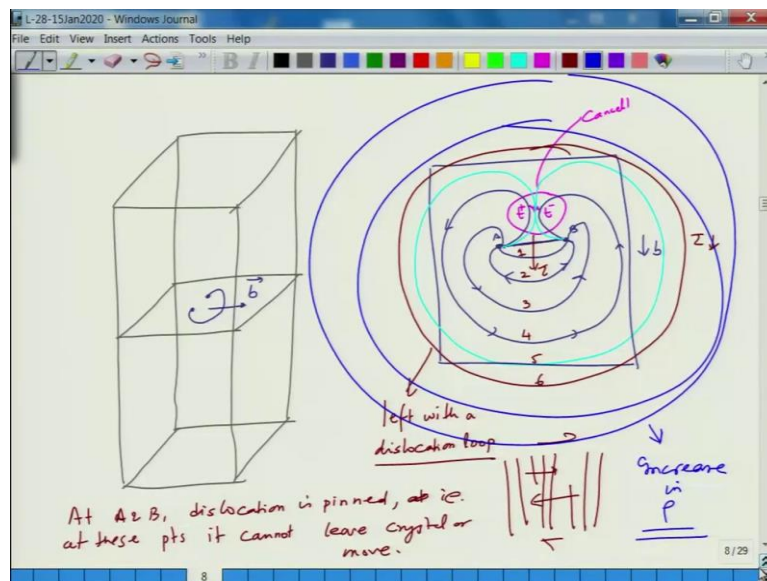 L-28-15Jan2020 - Windows Journal
File Edit View Insert Actions Tools Help
B I
Cancel
t+ t-
A B
1
τ
2
3
4
5
6
b
τ
b
left with a
dislocation loop
Increase
in
ρ
At A & B, dislocation is pinned, ie.
at these pts it cannot leave crystal or
move.
8/29
8